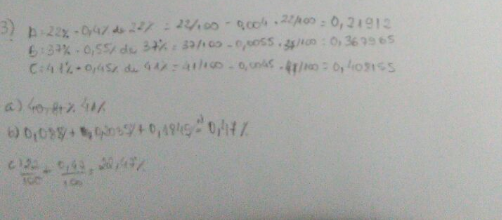 3) A=22% - 0,4% de 22% = 22/100 - 0,004 . 22/100 = 0,21912
B=37% - 0,55% de 37% = 37/100 - 0,0055 . 37/100 = 0,367965
C=41% - 0,45% de 41% = 41/100 - 0,0045 . 41/100 = 0,408155
a)
b) 0,47%
c) 22/100 + 100 = 22,47%